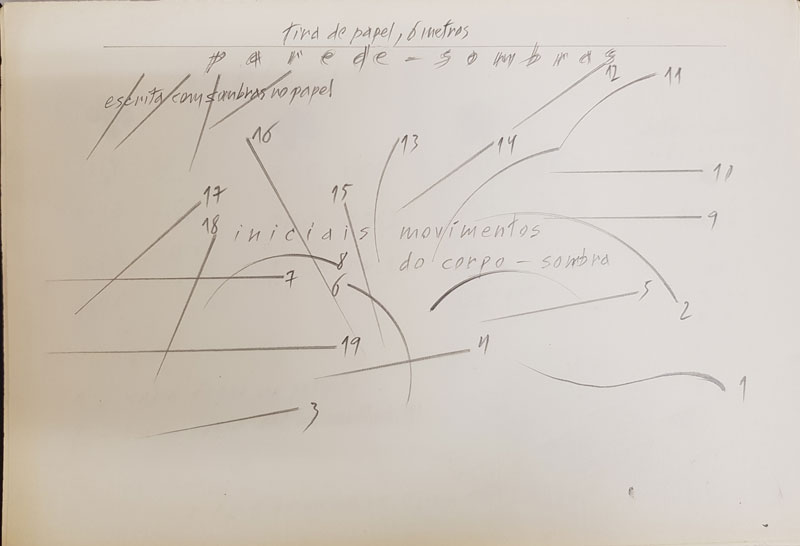 tira de papel, 6 metros
parede - sombras
escrita com sombras no papel
12
11
16
13
14
10
17
15
9
18
iniciais movimentos
do corpo - sombra
8
7
6
5
2
19
4
1
3